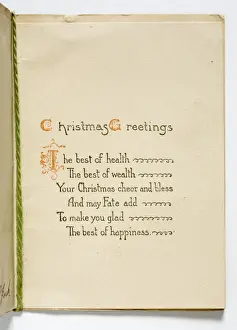 Christmas Greetings
The best of health
The best of wealth
Your Christmas cheer and bless
And may Fate add
To make you glad
The best of happiness.